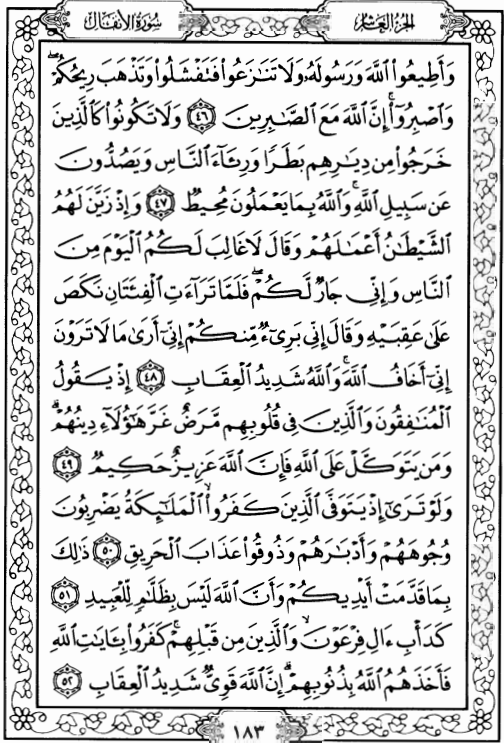 سُورَةُ الأَنفَالِ
الجُزءُ العَاشِرُ
وَأَطِيعُوا۟ ٱللَّهَ وَرَسُولَهُۥ وَلَا تَنَٰزَعُوا۟ فَتَفْشَلُوا۟ وَتَذْهَبَ رِيحُكُمْ ۖ
وَٱصْبِرُوٓا۟ ۚ إِنَّ ٱللَّهَ مَعَ ٱلصَّٰبِرِينَ ٤٦ وَلَا تَكُونُوا۟ كَٱلَّذِينَ
خَرَجُوا۟ مِن دِيَٰرِهِم بَطَرًا وَرِئَآءَ ٱلنَّاسِ وَيَصُدُّونَ
عَن سَبِيلِ ٱللَّهِ ۚ وَٱللَّهُ بِمَا يَعْمَلُونَ مُحِيطٌ ٤٧ وَإِذْ زَيَّنَ لَهُمُ
ٱلشَّيْطَٰنُ أَعْمَٰلَهُمْ وَقَالَ لَا غَالِبَ لَكُمُ ٱلْيَوْمَ مِنَ
ٱلنَّاسِ وَإِنِّى جَارٌ لَّكُمْ ۖ فَلَمَّا تَرَآءَتِ ٱلْفِئَتَانِ نَكَصَ
عَلَىٰ عَقِبَيْهِ وَقَالَ إِنِّى بَرِىٓءٌ مِّنكُمْ إِنِّىٓ أَرَىٰ مَا لَا تَرَوْنَ
إِنِّىٓ أَخَافُ ٱللَّهَ ۚ وَٱللَّهُ شَدِيدُ ٱلْعِقَابِ ٤٨ إِذْ يَقُولُ
ٱلْمُنَٰفِقُونَ وَٱلَّذِينَ فِى قُلُوبِهِم مَّرَضٌ غَرَّ هَٰٓؤُلَآءِ دِينُهُمْ ۗ
وَمَن يَتَوَكَّلْ عَلَى ٱللَّهِ فَإِنَّ ٱللَّهَ عَزِيزٌ حَكِيمٌ ٤٩
وَلَوْ تَرَىٰٓ إِذْ يَتَوَفَّى ٱلَّذِينَ كَفَرُوا۟ ۙ ٱلْمَلَٰٓئِكَةُ يَضْرِبُونَ
وُجُوهَهُمْ وَأَدْبَٰرَهُمْ وَذُوقُوا۟ عَذَابَ ٱلْحَرِيقِ ٥٠ ذَٰلِكَ
بِمَا قَدَّمَتْ أَيْدِيكُمْ وَأَنَّ ٱللَّهَ لَيْسَ بِظَلَّٰمٍ لِّلْعَبِيدِ ٥١
كَدَأْبِ ءَالِ فِرْعَوْنَ ۙ وَٱلَّذِينَ مِن قَبْلِهِمْ ۚ كَفَرُوا۟ بِـَٔايَٰتِ ٱللَّهِ
فَأَخَذَهُمُ ٱللَّهُ بِذُنُوبِهِمْ ۗ إِنَّ ٱللَّهَ قَوِىٌّ شَدِيدُ ٱلْعِقَابِ ٥٢
١٨٣